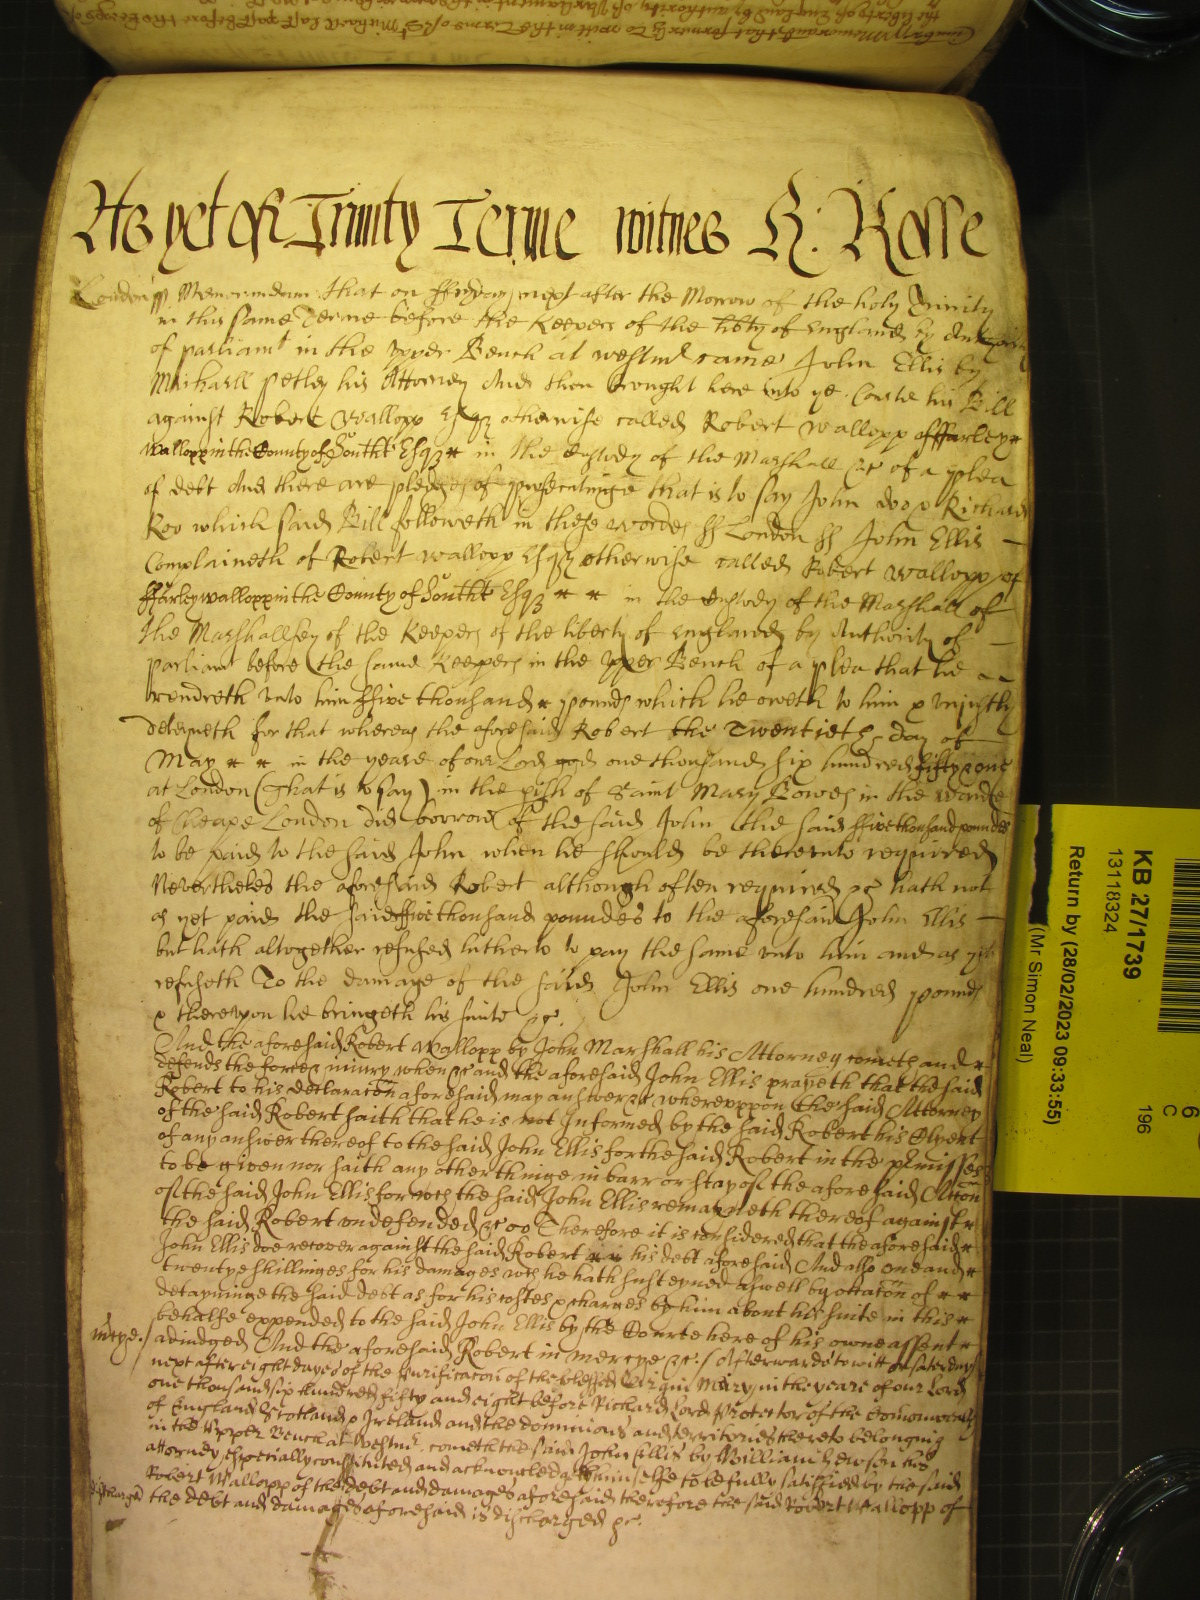 As yet of Trinity Terme witnes H: Rolle
London ss Memorandum that on ffryday next after the Morrow of the holy Trinity
in this same Terme before the Keepers of the libty of England by Authority
of parliamt in the Upper Bench at westmr came John Ellis by
Michaell Petley his Attorney And then brought here into ye Courte his Bill
against Robert Wallopp Esqr otherwise called Robert Wallopp of ffarley
Wallopp in the County of Southt Esqr in the Custody of the Marshall &c of a plea
of debt And there are pledges of prosecutinge that is to say John doo & Richard
Roo which said Bill followeth in these wordes ss London ss John Ellis
Complaineth of Robert Wallopp Esqr otherwise called Robert Wallopp of
ffarley wallopp in the County of Southt Esqr in the Custody of the Marshall of
the Marshallsey of the Keepers of the liberty of England by Authority of
parliamt before the same Keepers in the Upper Bench of a plea that he
rendreth unto him ffive thousand pounds which he oweth to him & uniustly
deteyneth for that whereas the aforesaid Robert the Twentieth day of
May in the yeare of our Lord god one thousand six hundred fifty & one
at London (that is to say) in the pish of Saint Mary Bowes in the warde
of Cheape London did borrow of the said John the said ffive thousand poundes
to be paid to the said John when he should be thereunto required
Neverthelesse the aforesaid Robert although often required &c hath not
as yet paid the said ffive thousand poundes to the aforesaid John Ellis
but hath altogether refused hitherto to pay the same unto him and as yet
refuseth To the damage of the said John Ellis one hundred pounds
& thereupon he bringeth his suite &c.
And the aforesaid Robert Wallopp by John Marshall his Attorney cometh and
defends the force & iniury when &c and the aforesaid John Ellis prayeth that the said
Robert to his declaration aforesaid may answer &c whereuppon the said Attorney
of the said Robert saith that he is not Informed by the said Robert his Clyent
of any answer thereof to the said John Ellis for the said Robert in the premisses
to be given nor saith any other thinge in barr or stay of the aforesaid Accon
of the said John Ellis for wch the said John Ellis remayneth thereof against
the said Robert undefended &c Therefore it is considered that the aforesaid
John Ellis doe recover against the said Robert his debt aforesaid And also one and
twentye shillinges for his damages wch he hath susteyned aswell by occasion of
detayninge the said debt as for his costes & charges by him about his suite in this
behalfe expended to the said John Ellis by the Courte here of his owne assent
mercye. adiudged And the aforesaid Robert in mercye &c. Afterwards to witt on saterday
next after eight dayes of the purification of the blessed Virgin Mary in the yeare of our Lord
one thousand six hundred fifty and eight before Richard Lord Protector of the Comonwealth
of England Scotland & Ireland and the dominions and territories thereto belonging
in the Upper Bench at Westmr. cometh the said John Ellis by William Hewson his
attorney especially constituted and acknowledgeth himselfe to be fully satisfied by the said
Robert Wallopp of the debt and damages aforesaid therefore the said Robert Wallopp of
discharged the debt and damages aforesaid is discharged &c.
KB 27/1739
13118324
Return by (28/02/2023 09:33:55)
(Mr Simon Neal)
6
C
196